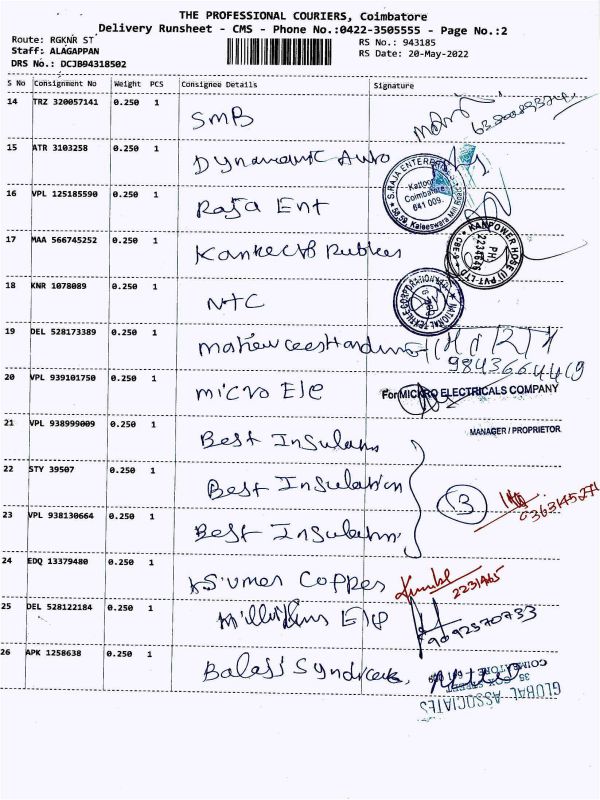 THE PROFESSIONAL COURIERS, Coimbatore
Delivery Runsheet - CMS - Phone No.:0422-3505555 - Page No.:2
Route: RGKNR ST
RS No.: 943185
Staff: ALAGAPPAN
RS Date: 20-May-2022
DRS No.: DCJB94318502
S No Consignment No Weight PCS Consignee Details Signature
14 TRZ 320057141 0.250 1 SMB
15 ATR 3103258 0.250 1 Dynamatic Auto
16 VPL 125185590 0.250 1 Raja Ent
S.RAJA ENTERPRISES
Kattoor
Coimbatore
641 009.
58-59, Kaleeswara Mill Road
17 MAA 566745252 0.250 1 Rubber
KANPOWER HOSE (I) PVT-LTD
PH
2236646
CBE-9
18 KNR 1078089 0.250 1 NTC
NATIONAL TEXTILE CORPORATION
19 DEL 528173389 0.250 1
9843664469
20 VPL 939101760 0.250 1 Micro Ele
For MICRO ELECTRICALS COMPANY
MANAGER / PROPRIETOR
21 VPL 938999009 0.250 1 Best Insulation
22 STY 39507 0.250 1 Best Insulation
3
23 VPL 938130664 0.250 1 Best Insulation
24 EDQ 13379480 0.250 1 Copper
2231465
25 DEL 528122184 0.250 1 Ele
9092570733
26 APK 1258638 0.250 1 Balaji Syndicate
GLOBAL ASSOCIATES
COIMBATORE